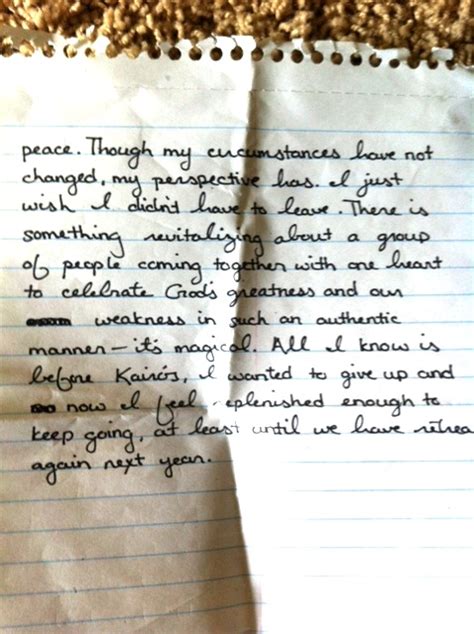 peace. Though my circumstances have not
changed, my perspective has. I just
wish I didn't have to leave. There is
something revitalizing about a group
of people coming together with one heart
to celebrate God's greatness and our
weakness in such an authentic
manner—it's magical. All I know is
before Kairos, I wanted to give up and
now I feel replenished enough to
keep going, at least until we have retrea
again next year.